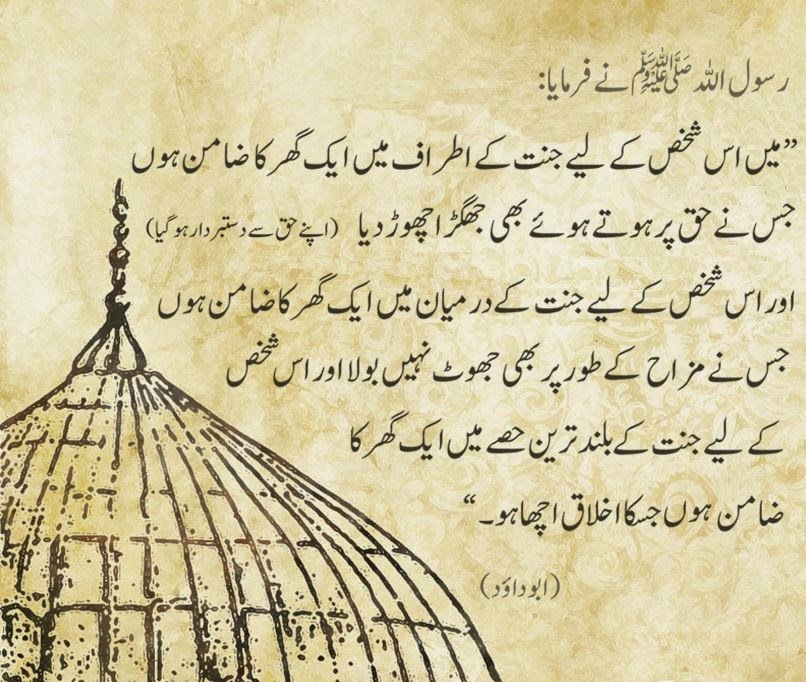 رسول اللہ ﷺ نے فرمایا:
”میں اس شخص کے لیے جنت کے اطراف میں ایک گھر کا ضامن ہوں
جس نے حق پر ہوتے ہوئے بھی جھگڑا چھوڑ دیا (اپنے حق سے دستبردار ہو گیا)
اور اس شخص کے لیے جنت کے درمیان میں ایک گھر کا ضامن ہوں
جس نے مزاح کے طور پر بھی جھوٹ نہیں بولا اور اس شخص
کے لیے جنت کے بلند ترین حصے میں ایک گھر کا
ضامن ہوں جسکا اخلاق اچھا ہو۔“
(ابوداؤد)